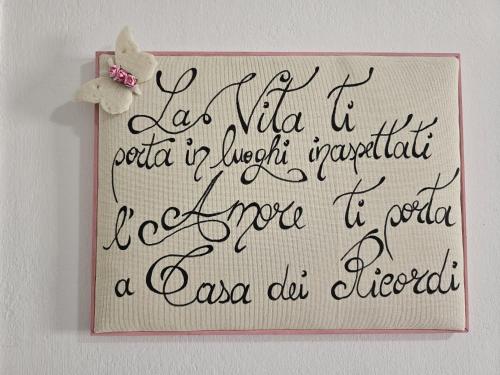 La Vita ti
porta in luoghi inaspettati
l'Amore ti porta
a Casa dei Ricordi